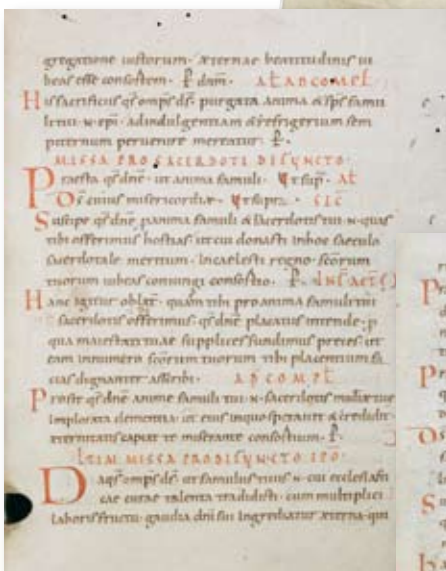 gregatione iustorum. æternae beatitudinis iu
beas esse consortem. P dñm. Al ad compl
His sacrificiis qs omps ds. purgata anima & sps famu
li tui N epi. ad indulgentiam & refrigerium sem
piternum peruenire mereatur. P.
MISSA PRO SACERDOTI DEFUNCTO.
Praesta qs dne. ut anima famuli. Ut sup. Al
Ds cuius misericordiae. Ut supra. SEC
Suscipe qs dne p anima famuli & sacerdotis tui N quas
tibi offerimus hostias. ut cui donasti in hoc saeculo
sacerdotale meritum. in caelesti regno scorum
tuorum iubeas coniungi consortio. P. INF ACT
Hanc igitur oblat. quam tibi pro anima famuli tui
sacerdotis offerimus. qs dne placatus intende. p
qua maiestati tuae supplices fundimus preces. ut
eam in numero scorum tuorum tibi placentium fa
cias dignanter ascribi. AD COMPL
Prosit qs dne anime famuli tui N sacerdotis
implorata clementia. ut eius in quo sperauit & credidit
aeternitatis capiat te miserante consortium. P.
ITEM MISSA PRO DEFUNCTO EPO.
Da qs omps ds. ut famulus tuus N cui ecclesiasti
cae curae talenta tradidisti. cum multiplici
laboris fructu. gaudia dni sui ingrediatur aeterna. qui